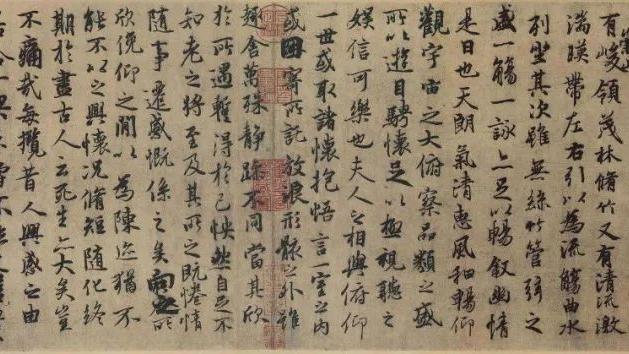 崇山
有峻領茂林脩竹又有清流激
湍暎帶左右引以為流觴曲水
列坐其次雖無絲竹管弦之
盛一觴一詠亦足以暢敘幽情
是日也天朗氣清惠風和暢仰
觀宇宙之大俯察品類之盛
所以遊目騁懷足以極視聽之
娛信可樂也夫人之相與俯仰
一世或取諸懷抱悟言一室之內
或因寄所託放浪形骸之外雖
趣舍萬殊靜躁不同當其欣
於所遇蹔得於己怏然自足不
知老之將至及其所之既惓情
隨事遷感慨係之矣向之所
欣俛仰之閒以為陳迹猶不
能不以之興懷況脩短隨化終
期於盡古人云死生亦大矣豈
不痛哉每攬昔人興感之由